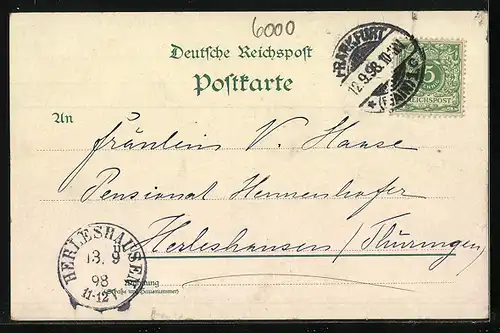 6000
Deutsche Reichspost
Postkarte
FRANKFURT
12.9.98.10-11N
* (MAIN)
5
REICHSPOST
An
Fräulein V. Haase
Pensionat Hennenhofer
Herleshausen / Thüringen
HERLESHAUSEN
13. 9
98
11-12V
Wohnung
(Straße und Hausnummer)